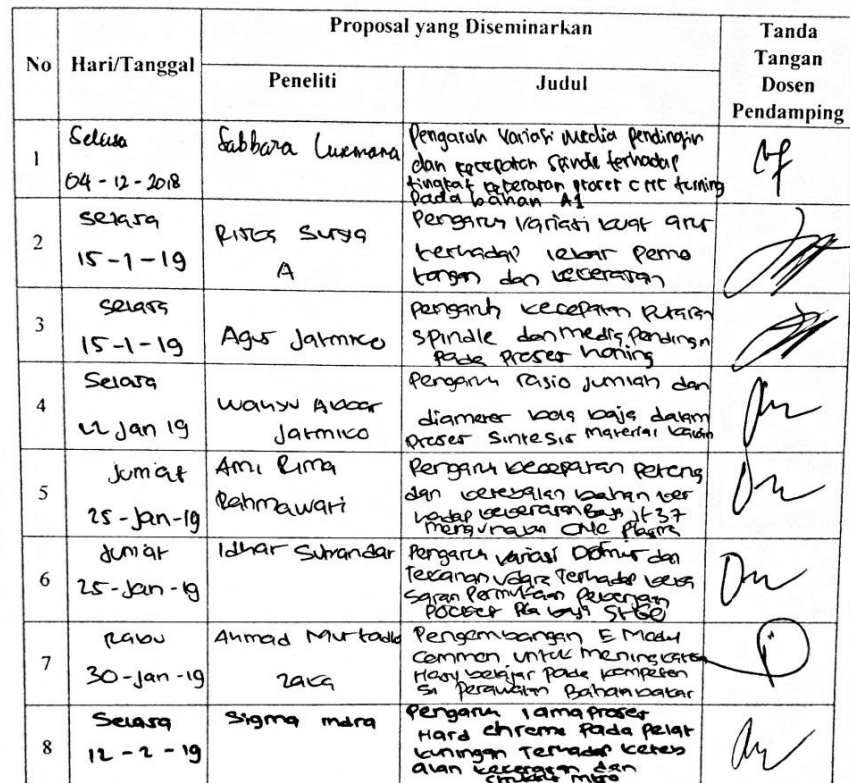 No
Hari/Tanggal
Proposal yang Diseminarkan
Peneliti
Judul
Tanda
Tangan
Dosen
Pendamping
1
Selasa
04 - 12 - 2018
Sabbara
Pengaruh Variasi Media pendingin
dan kecepatan Spindle terhadap
tingkat proses CNC turning
Pada bahan Al
2
Selasa
15 - 1 - 19
Surya
A
Pengaruh Variasi kuat arus
terhadap lebar Pemo
tongan dan kekerasan
3
Selasa
15 - 1 - 19
Agus Jatmiko
Pengaruh kecepatan Putaran
spindle dan media Pendingin
pada Proses honing
4
Selasa
22 Jan 19
Wahyu Akbar
Jatmiko
Pengaruh rasio jumlah dan
diameter bola baja dalam
proses sintesis material
5
Jum'at
25 - Jan - 19
Ami Rima
Rahmawati
Pengaruh kecepatan
dan ketebalan bahan ter
hadap kekerasan Baja
CNC Plasma
6
Jum'at
25 - Jan - 19
Idhar
Pengaruh Variasi dan
Tekanan Udara Terhadap keka
saran Permukaan
baja
7
Rabu
30 - Jan - 19
Ahmad Murtadlo
Zaka
Pengembangan E Modul
Common untuk meningkatkan
Hasil belajar Pada kompeten
si Perawatan Bahan bakar
8
Selasa
12 - 2 - 19
Sigma
Pengaruh lama Proses
Hard chrome Pada Pelat
kuningan Terhadap keteb
alan kekerasan dan
struktur mikro